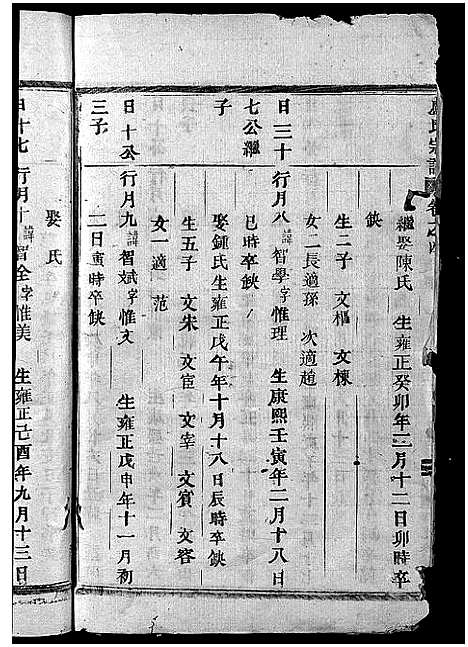 氏宗譜 卷
繼娶陳氏 生雍正癸卯年二月十二日卯時卒
缺
生二子 文樞 文棟
女二長適孫 次適趙
日三十 行月八 諱智學字惟理 生康熙壬寅年二月十八日
七公繼 巳時卒缺
子 娶鍾氏生雍正戊午年十月十八日辰時卒缺
生五子 文朱 文宦 文宰 文賓 文容
女一適 范
日十公 行月九 諱智斌字惟文 生雍正戊申年十一月初
三子 二日寅時卒缺
娶 氏
日十七 行月十 諱智全字惟美 生雍正己酉年九月十三日